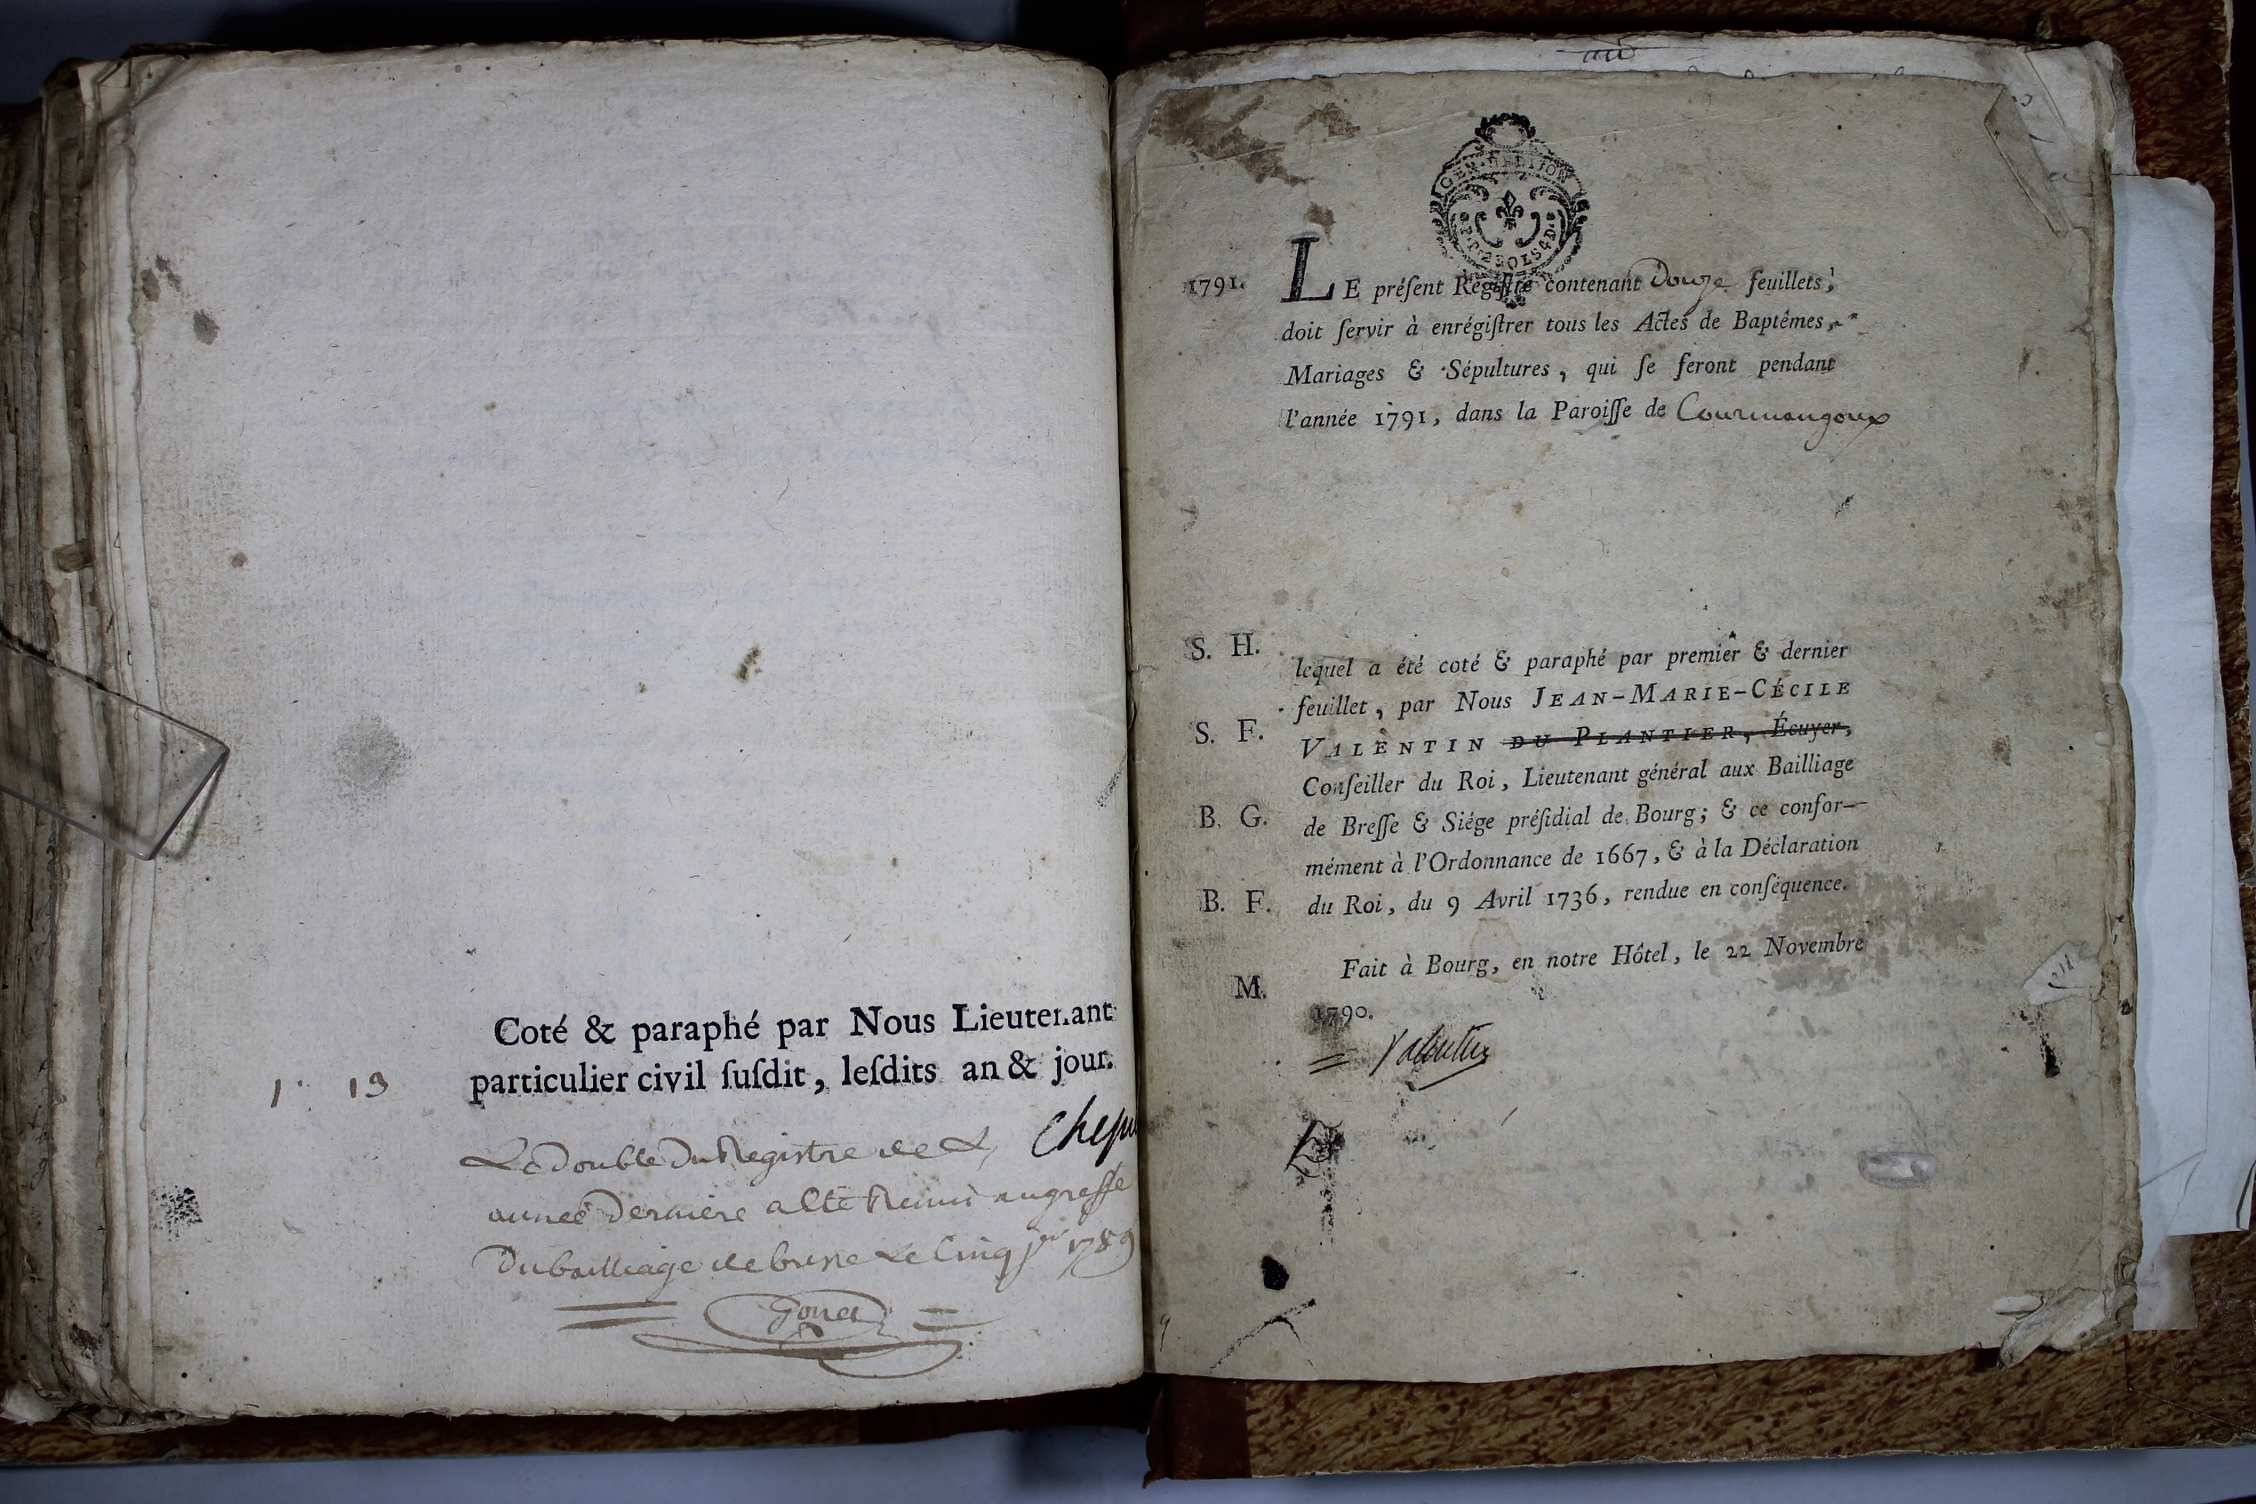 Coté & paraphé par Nous Lieutenant
particulier civil ſuſdit, leſdits an & jour.
1. 13
Le double du Registre de L
année derniere a été Remis au greffe
Du bailliage de bresse Le Cinq jer 1789
Gonet
au
GEN. DE DIJON
1791. LE préſent Regiſtre contenant Douze feuillets,
doit ſervir à enrégiſtrer tous les Actes de Baptêmes,
Mariages & Sépultures, qui ſe feront pendant
l'année 1791, dans la Paroiſſe de Courmangoux
S. H. lequel a été coté & paraphé par premier & dernier
feuillet, par Nous JEAN-MARIE-CÉCILE
S. F. VALENTIN DU PLANTIER, Écuyer,
Conſeiller du Roi, Lieutenant général aux Bailliage
B. G. de Breſſe & Siége préſidial de Bourg; & ce confor-
mément à l'Ordonnance de 1667, & à la Déclaration
B. F. du Roi, du 9 Avril 1736, rendue en conſéquence.
Fait à Bourg, en notre Hôtel, le 22 Novembre
M. 1790.
Valentin